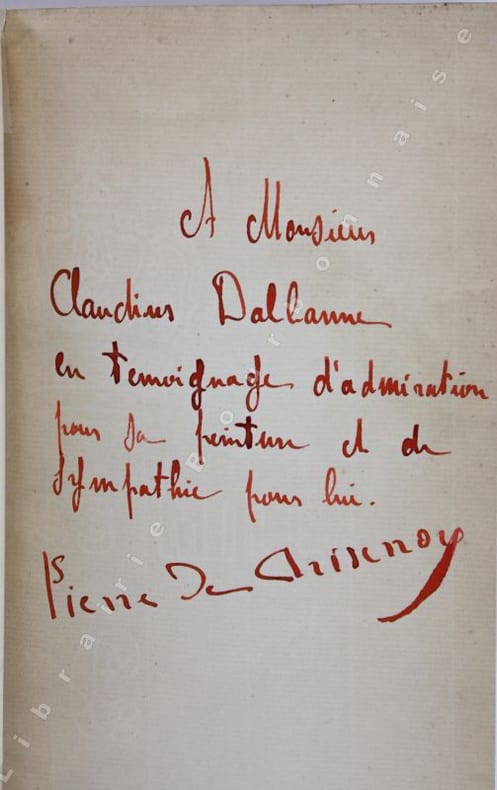 A Monsieur
Claudius Dalbanne
en temoignage d'admiration
pour sa peinture et de
sympathie pour lui.
Pierre De Crisenoy
Librairie Bordonnaise